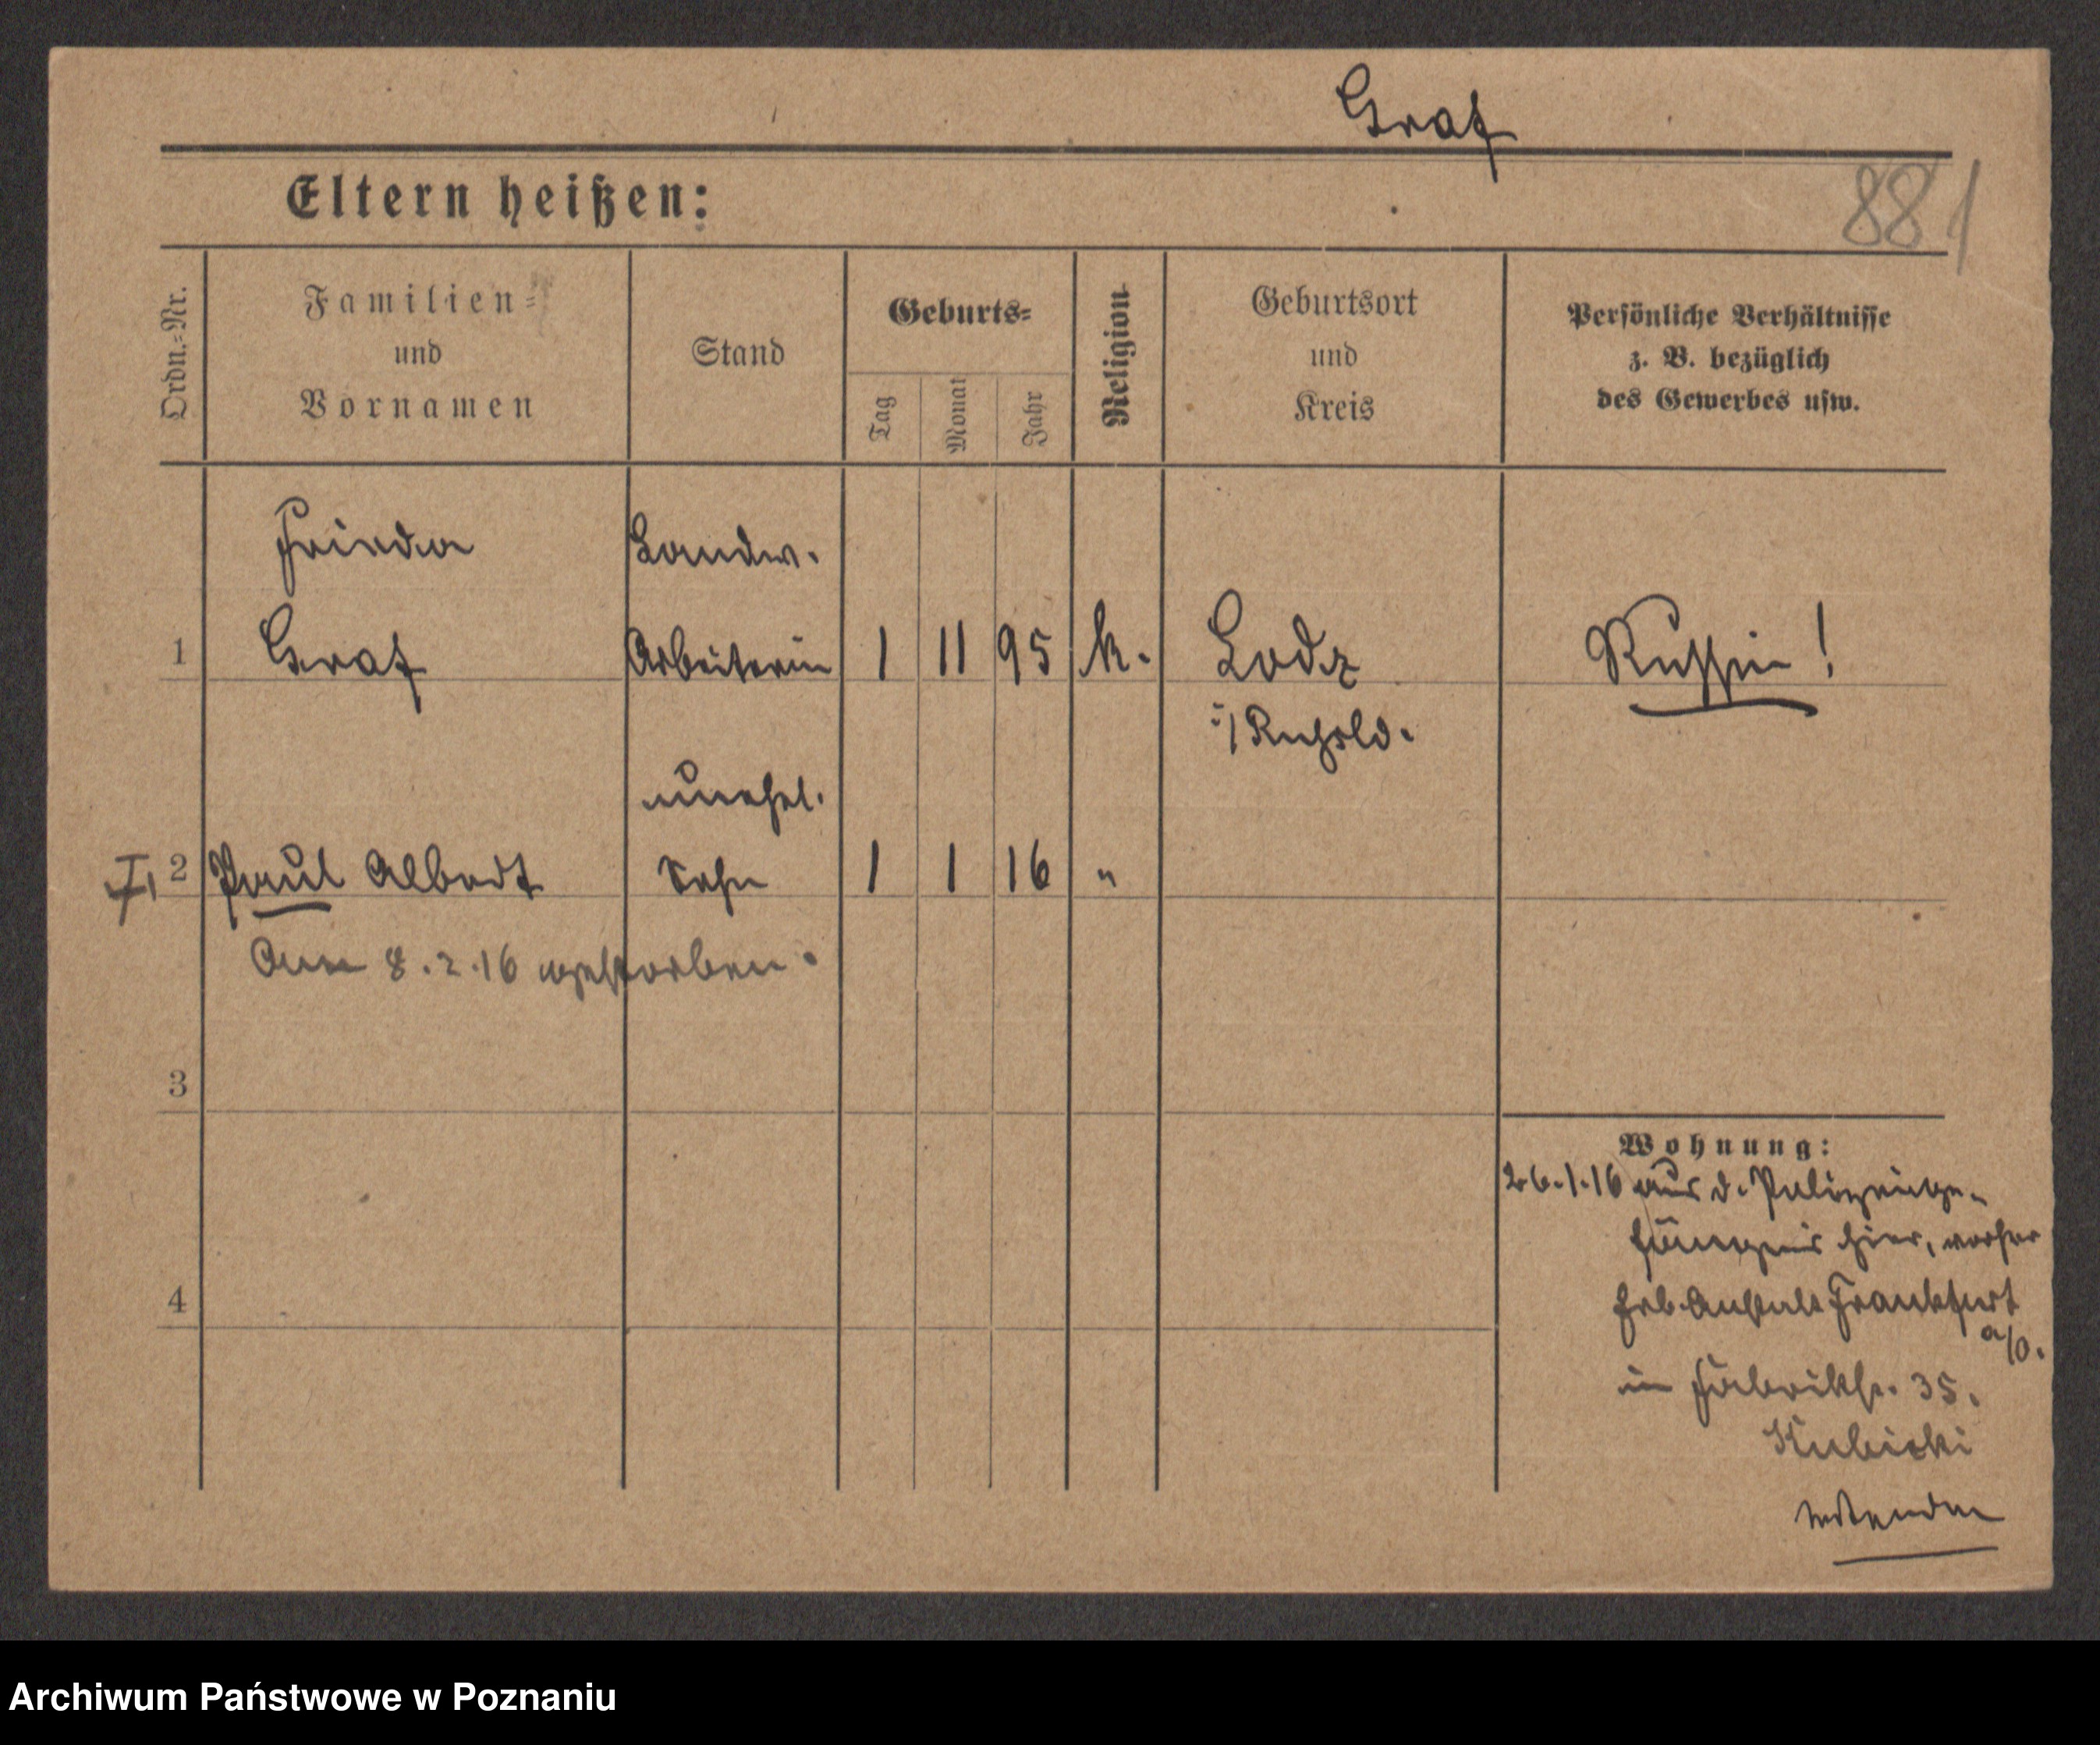 Graf
881
Eltern heißen:
Ordn.-Nr.
Familien-
und
Vornamen
Stand
Geburts-
Tag
Monat
Jahr
Religion
Geburtsort
und
Kreis
Persönliche Verhältnisse
z. B. bezüglich
des Gewerbes usw.
Frieda Landw.
1 Graf Arbeiterin 1 11 95 k. Lodz Russin!
i/Rußld.
unehel.
2 Paul Sohn 1 1 16 "
Am 8.2.16 gestorben.
3
Wohnung:
26.1.16 aus d. Polizeige-
fängnis hier, vorher
4
Anstalt Frankfurt
a/O.
in Fabrikstr. 35.
Kubicki
wenden
Archiwum Państwowe w Poznaniu